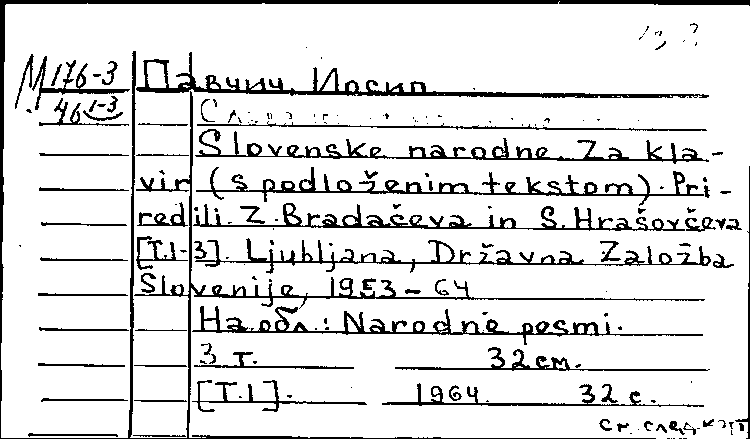 М 176-3
46 1-3
Павчич, Иосип
Slovenske narodne. Za kla-
vir (s podloženim tekstom). Pri-
redili. Z. Bradačeva in S. Hrašovčeva
[T.1-3]. Ljubljana, Državna Založba
Slovenije, 1953-64
На обл.: Narodne pesmi.
3 т. 32 см.
[T.1]. 1964. 32 с.
См. след. карт